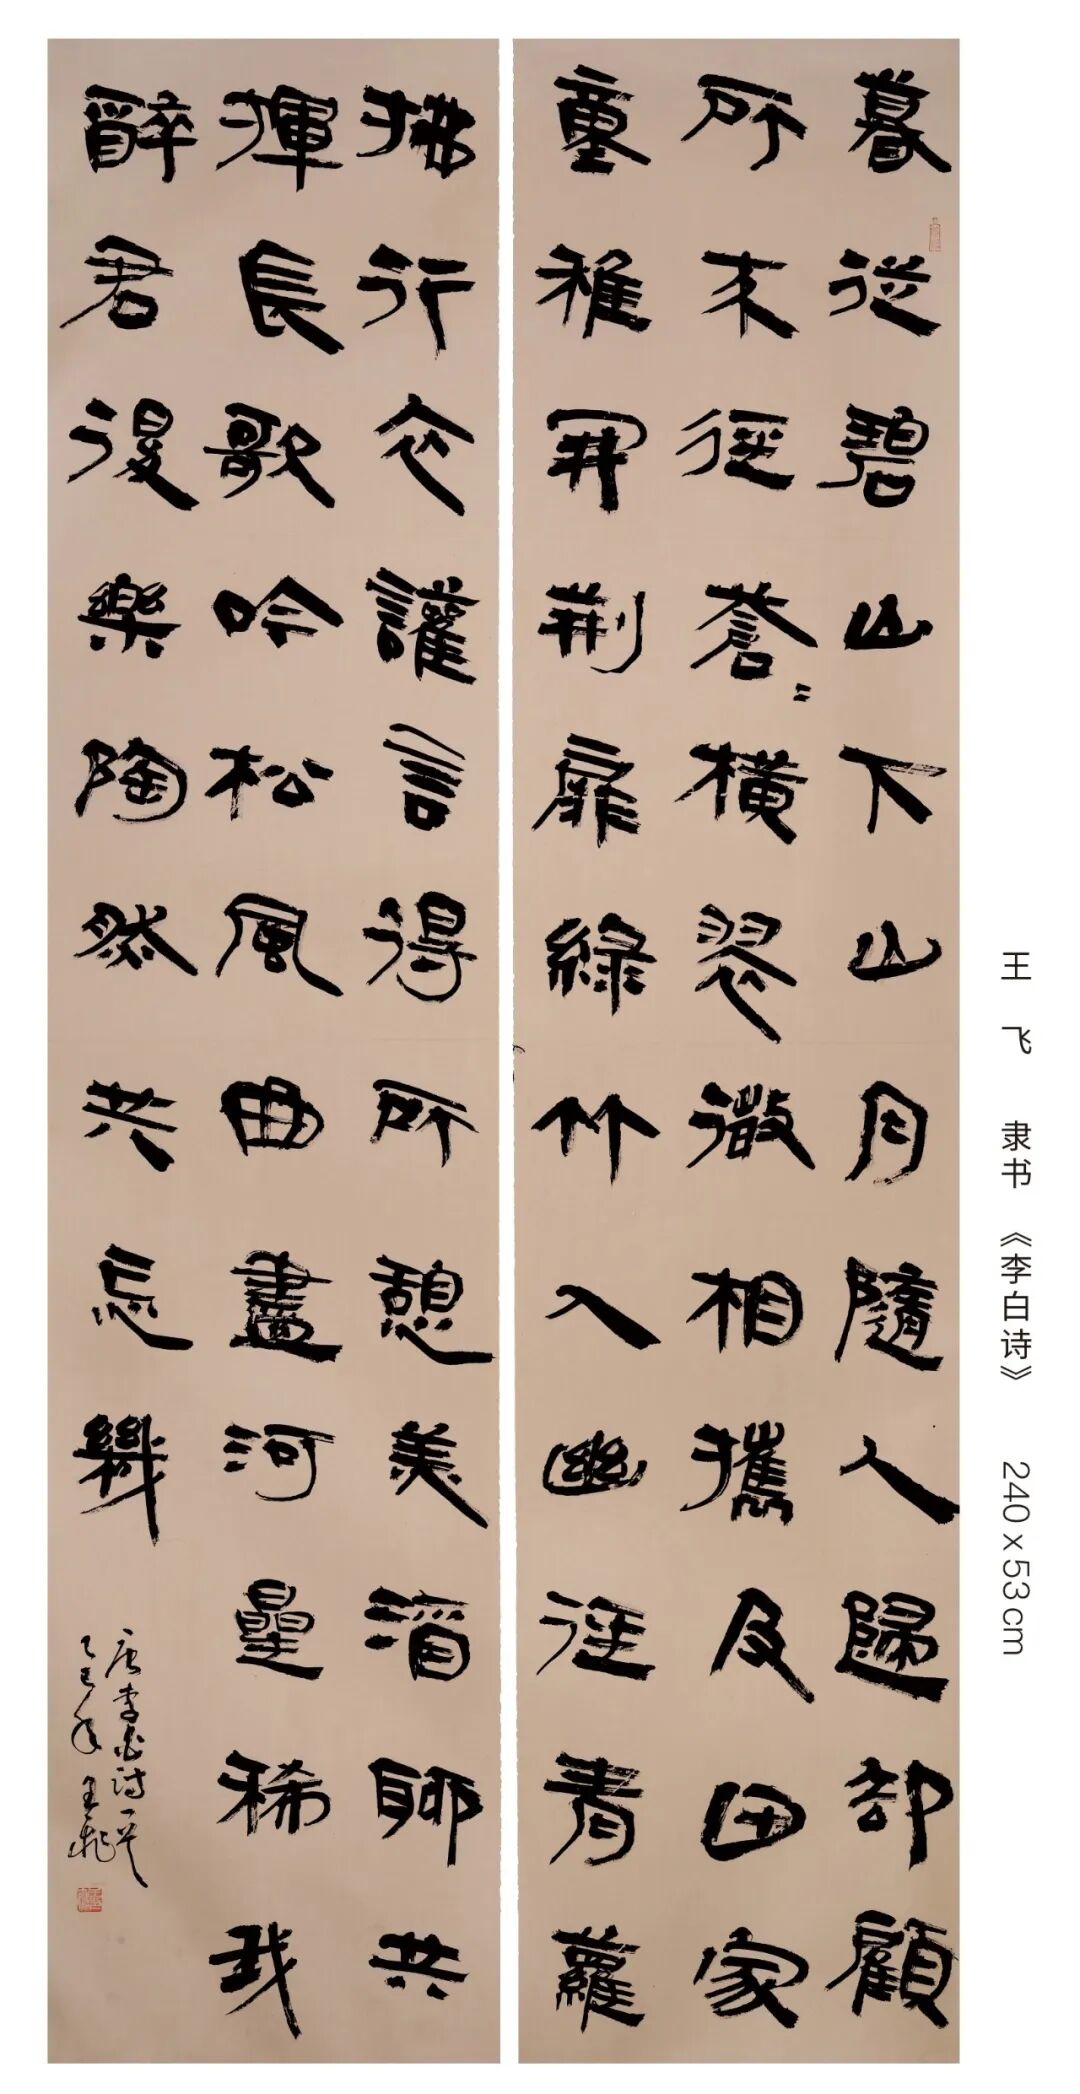 暮從碧山下山月隨人歸却顧
所來徑蒼〻橫翠微相攜及田家
童稚開荊扉綠竹入幽徑青蘿
拂行衣讙言得所憩美酒聊共
揮長歌吟松風曲盡河星稀我
醉君復樂陶然共忘機
唐李白詩一首
乙巳年 王飛
王飞 隶书 《李白诗》 240x53cm